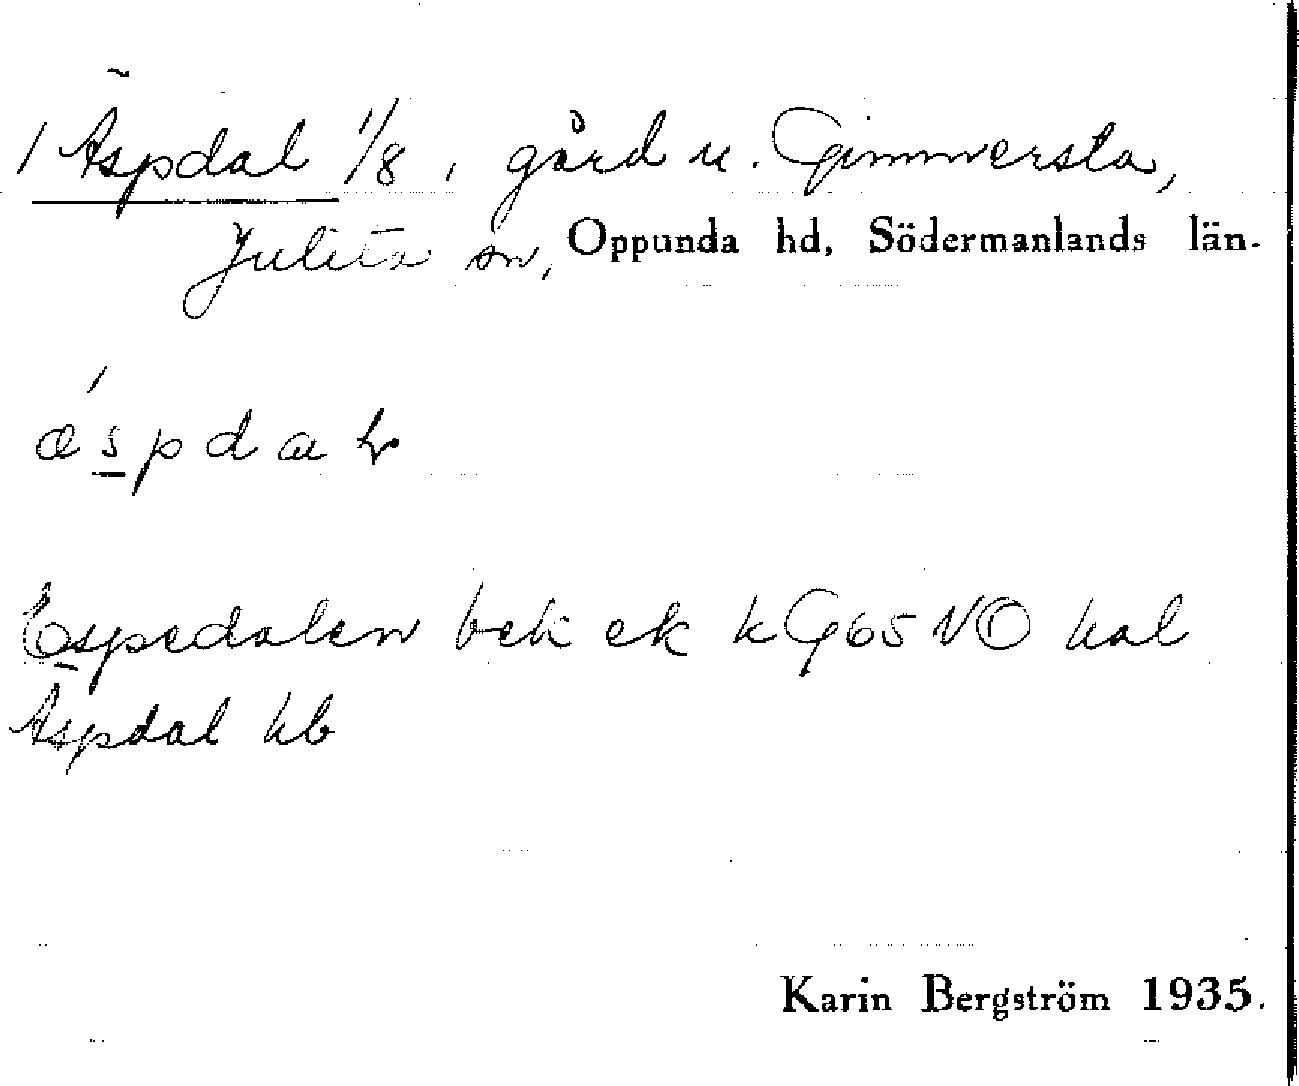 1 Äspdal 1/8, gård u. Gimmersta,
Julita sn, Oppunda hd, Södermanlands län.
Espedalen bek ek kG65 NO kal
Äspdal hb
Karin Bergström 1935.